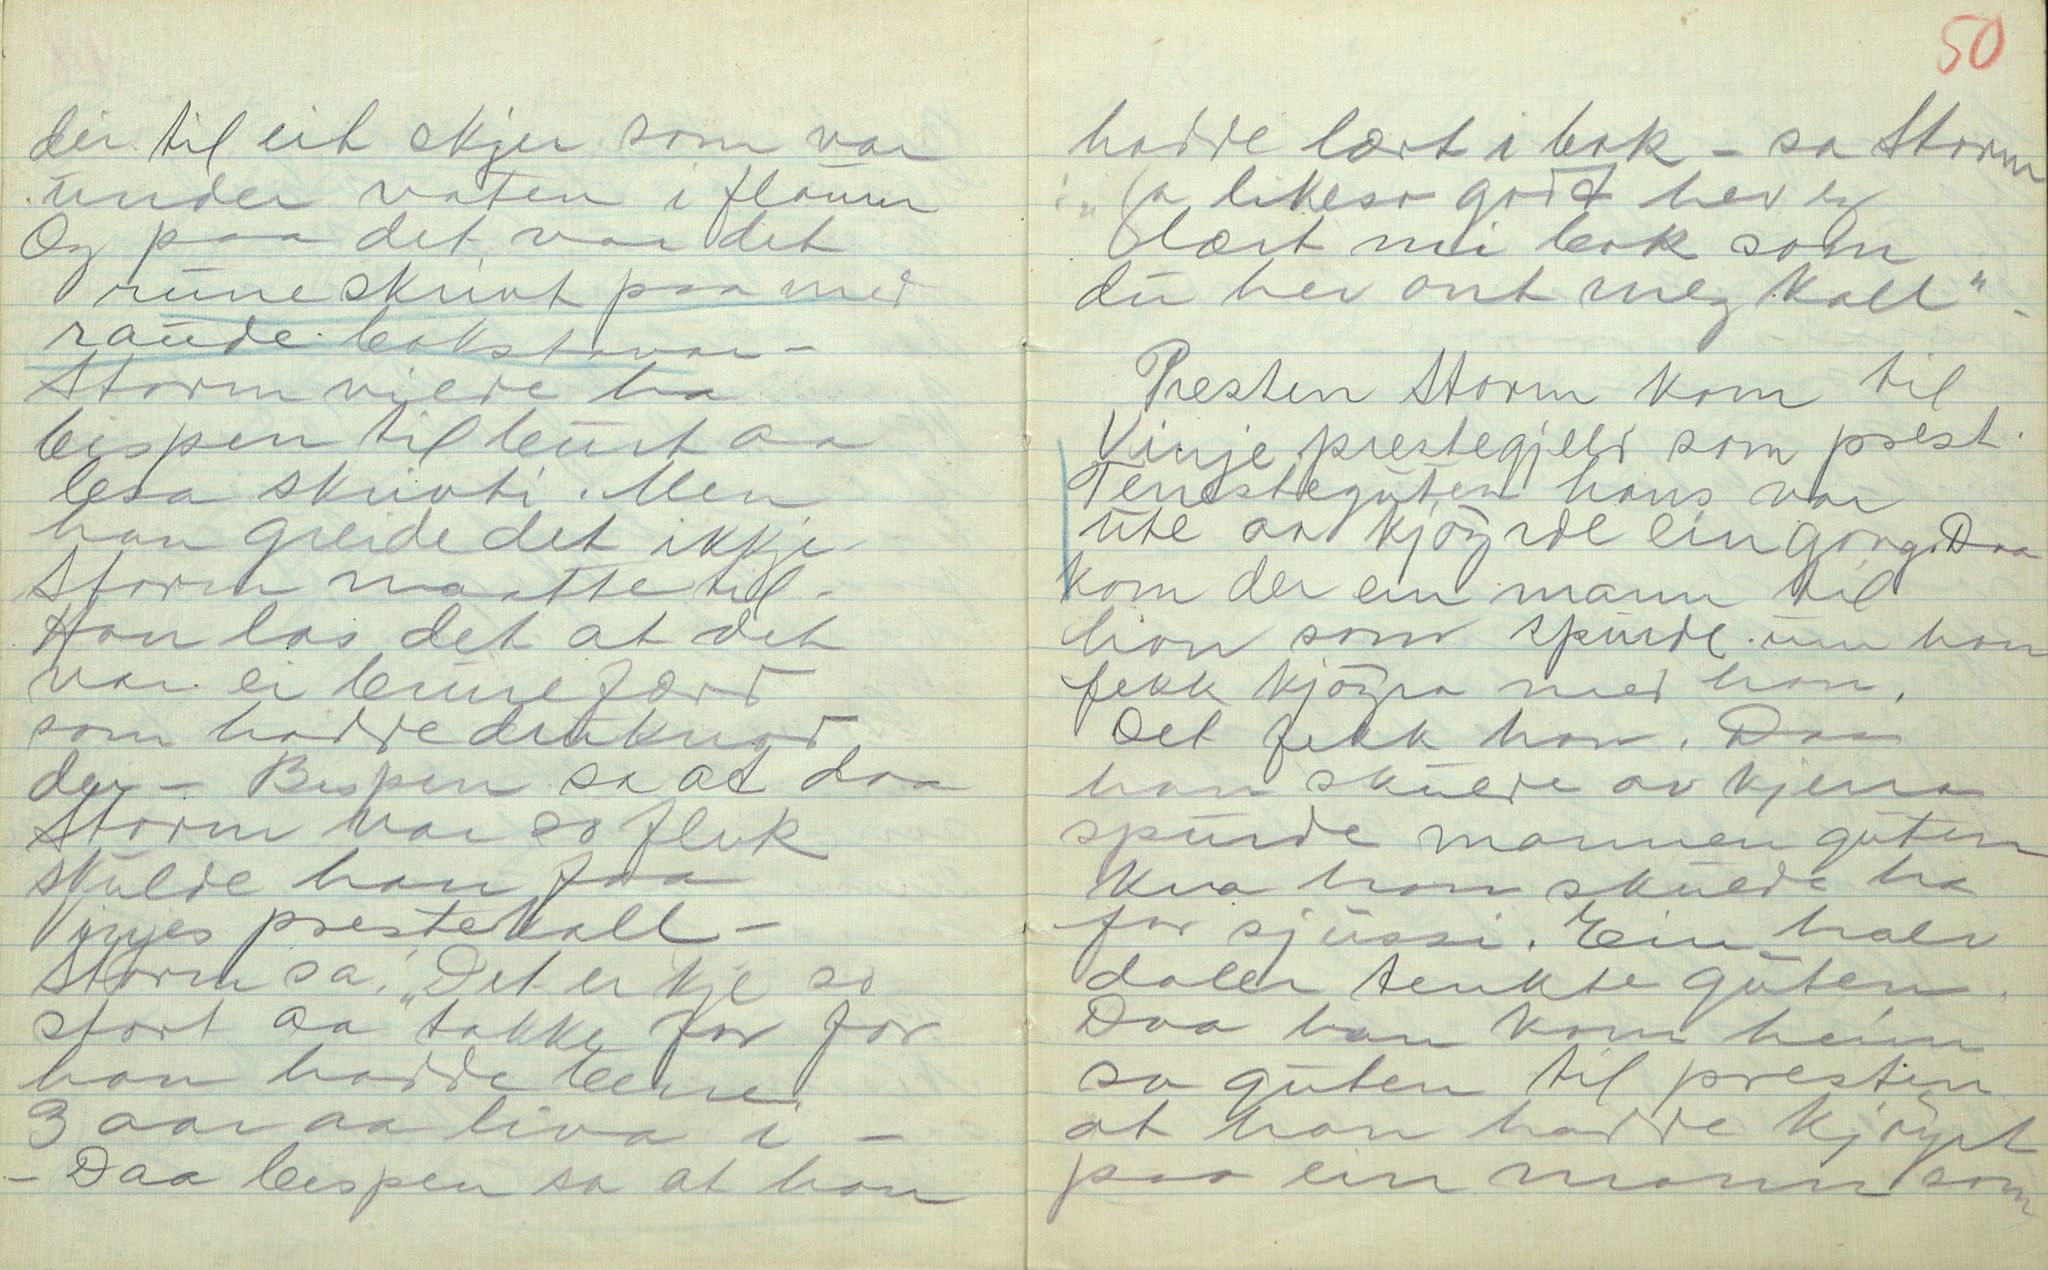 der til eit skjer som var
under vaten i flaum
Og paa det var det
runeskrivt paa med
raude bokstavar –
Storm vilde ha
bispen til burt aa
lesa skrivti. Men
han greide det ikkje
Storm maatte til.
Han las det at det
var ei brureferd
som hadde druknad
der – Bispen sa at daa
Storm var so fluk
skulde han faa
Vinjes prestekall –
Storm sa: "Det er kje so
stort aa takke for for
han hadde berre
3 aar aa liva i –
– Daa bispen sa at han
50
hadde lært i bok – sa Storm
"Ja likeso godt hev eg
lært mi bok som
du hev ont meg kall" –
Presten Storm kom til
Vinje prestegjeld som prest.
Tenesteguten hans var
ute aa kjöyrde ein gong. Daa
kom der ein mann til
han som spurde um han
fekk kjöyra med han.
Det fekk han. Daa
han skulde av kjerra
spurde mannen guten
kva han skulde ha
for sjussi. Ein halv
daler tenkte guten.
Daa han kom heim
sa guten til presten
at han hadde kjöyrt
paa ein mann som